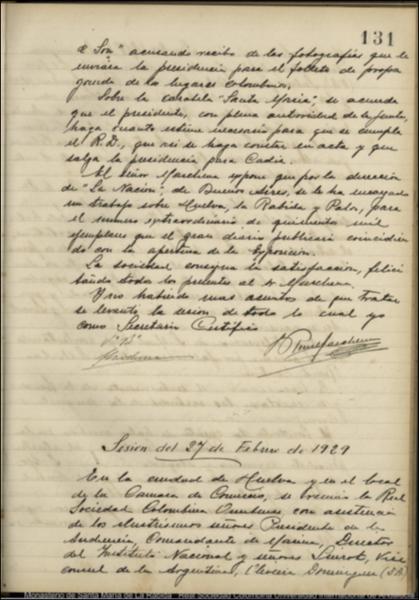 131
& Son" acusando recibo de las fotografías que le
enviara la presidencia para el folleto de propa
ganda de los lugares colombinos.
Sobre la carabela "Santa María", se acuerda
que el presidente, con plena autoridad de la Junta,
haga cuanto estime necesario para que se cumpla
el R.D., que así se haga constar en acta y que
salga la presidencia para Cadiz.
El señor Marchena expone que por la dirección
de "La Nación", de Buenos Aires, se le ha encargado
un trabajo sobre Huelva, la Rabida y Palos, para
el numero extraordinario de quinientos mil
ejemplares que el gran diario publicará coincidien
do con la apertura de la Exposición.
La sociedad consigna la satisfacción, felici
tándo todos los presentes al Sr. Marchena.
Y no habiendo mas asuntos de que tratar
se levantó la sesion de todo lo cual yo
como Secretario Certifico
Vº Bº
Sesion del 27 de Febrero de 1929
En la ciudad de Huelva y en el local
de la Camara de Comercio, se reunió la Real
Sociedad Colombina Onubense con asistencia
de los ilustrisimos señores Presidente de la
Audiencia, Comandante de Marina, Director
del Instituto Nacional y señores Vice
consul de la Argentina, Dominguez